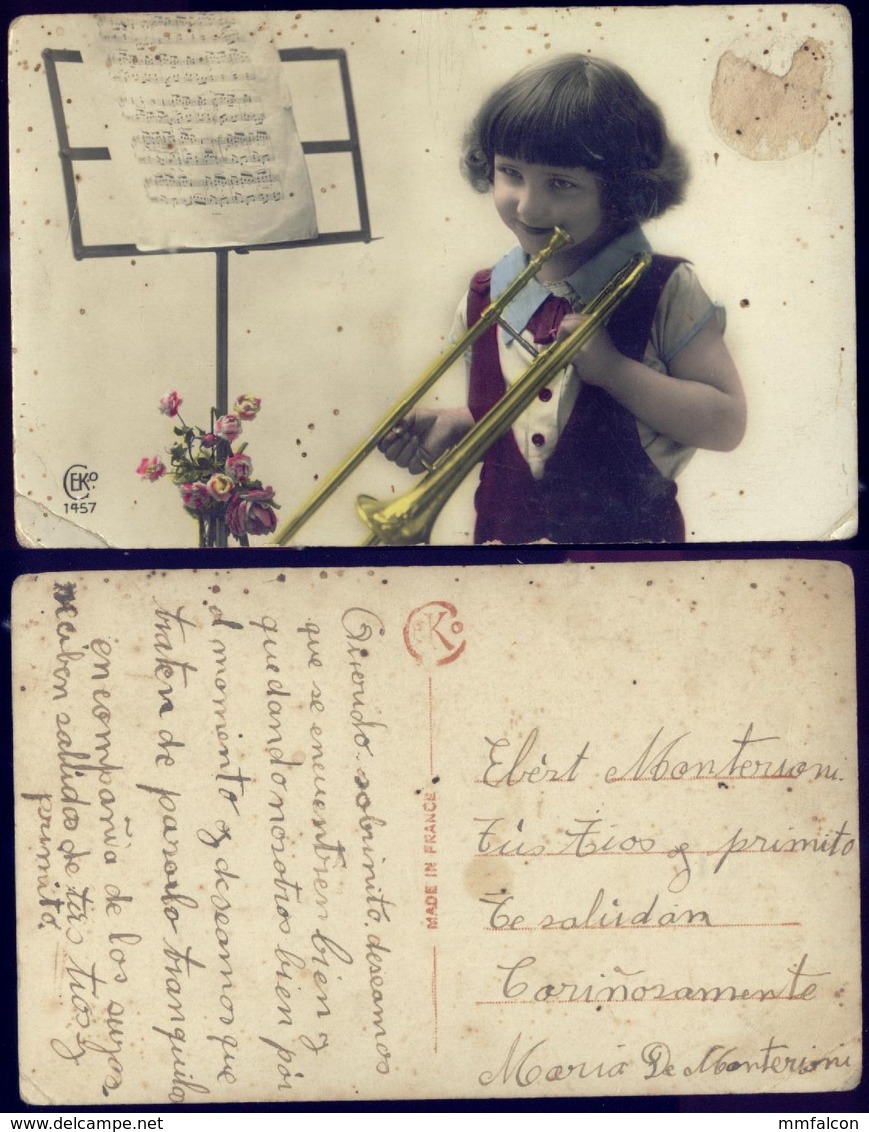 CEKO
1457
Querido sobrinito. deseamos
que se encuentren bien y
quedando nosotros bien pór
el momento y deseamos que
traten de pasarlo tranquilo
en compañia de los suyos
reciben saludos de tús tios y
primito.
EKO
MADE IN FRANCE
Ebért Monterioni.
Tús tios y primito
te salúdan
Cariñosamente
Maria De Monterioni
mmfalcon